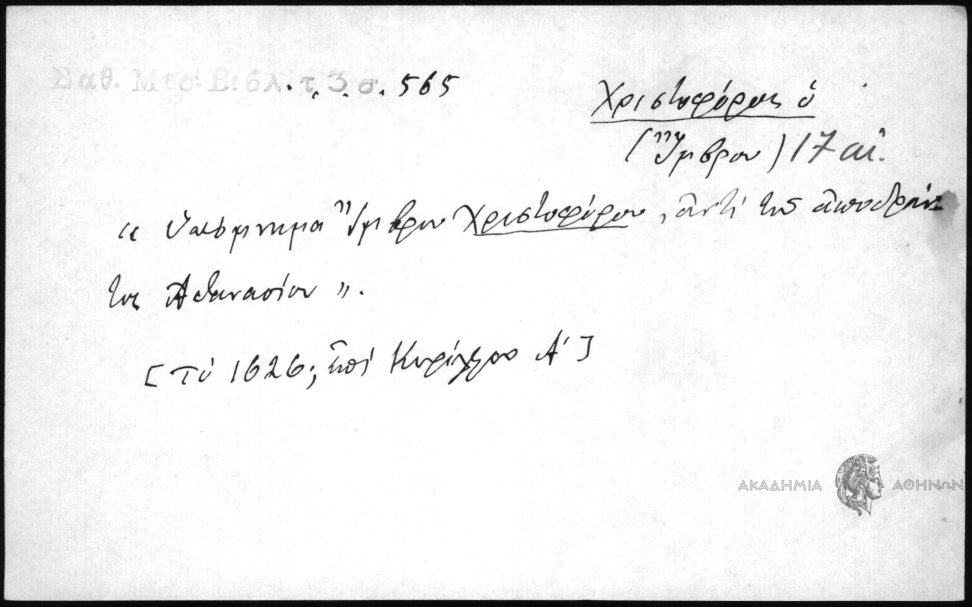 Σαθ. Μεσ. Βιβλ. τ. 3 σ. 565
Χριστοφόρος ὁ
(Ἴμβρου) 17 αἰ.
« Ὑπόμνημα Ἴμβρου Χριστοφόρου, ἀντὶ τοῦ ἀποδράν-
τος Ἀθανασίου ».
[Τὸ 1626; ἐπὶ Κυρίλλου Α΄]
ΑΚΑΔΗΜΙΑ ΑΘΗΝΩΝ